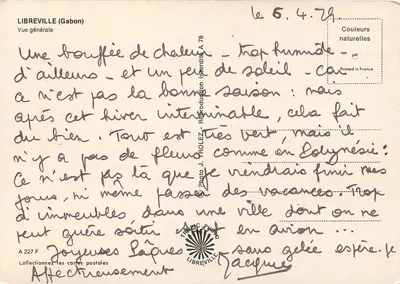 LIBREVILLE (Gabon)
Vue générale
le 6.4.79.
Couleurs
naturelles
Printed in France
Une bouffée de chaleur - trop humide -
d'ailleurs - et un peu de soleil - car
ce n'est pas la bonne saison : mais
après cet hiver interminable, cela fait
du bien. Tout est très vert, mais il
n'y a pas de fleurs comme en Polynésie :
ce n'est pas là que je viendrais finir mes
jours, ni même passer des vacances. Trop
d'immeubles, dans une ville dont on ne
peut guère sortir en avion ...
Joyeuses Pâques - sans gelée espère-je
Affectueusement Jacques
Reproduction interdite A 78
A 227 F
Collectionnez les cartes postales
LIBREVILLE